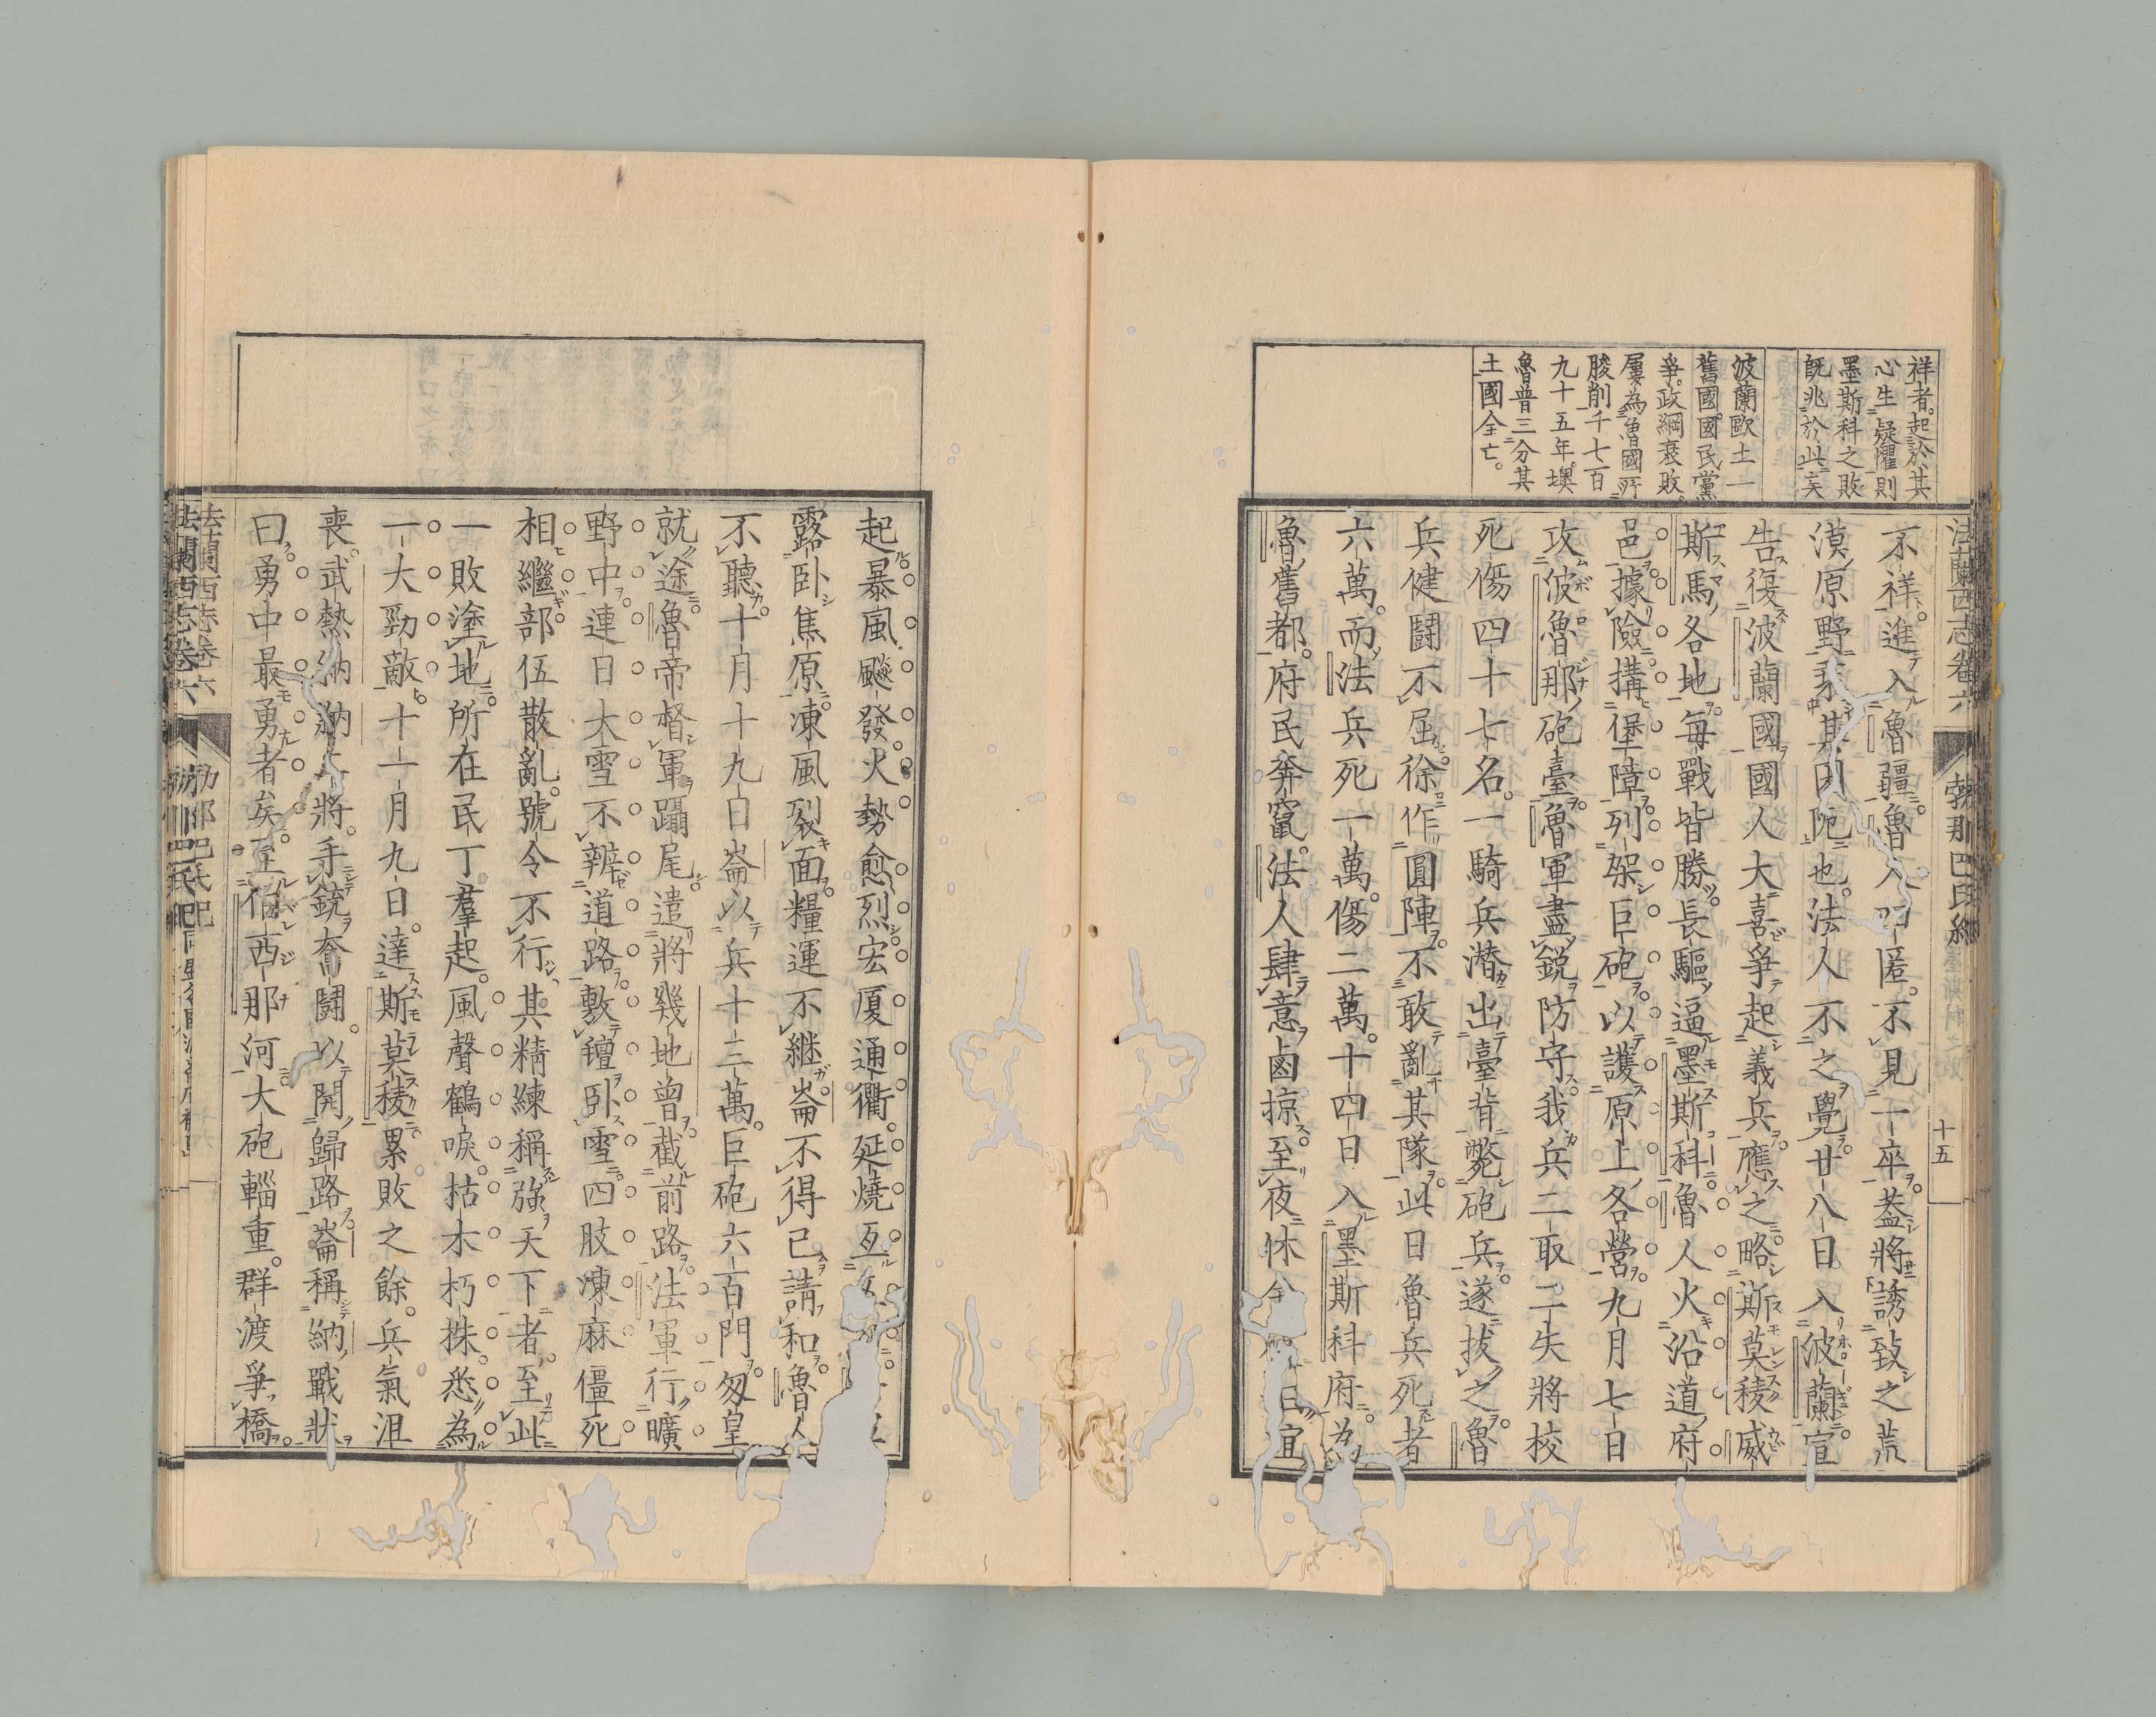 法蘭西志卷六
勃那巴氏紀
十五
祥者。起於其
心生疑懼則
墨斯科之敗
既兆於此矣
波蘭歐土一
舊國。國民黨
爭。政綱衰敗。
屢為魯國所
朘削千七百
九十五年。墺
魯普三分其
土國全亡。
不祥。進入魯疆。魯人四匿。不見一卒。蓋將誘致之荒
漠原野乘其困阨也。法人不之覺。廿八日。入波蘭。宣
告復波蘭國國人大喜爭起義兵應之略斯莫稜威
斯馬各地每戰皆勝。長驅逼墨斯科。魯人火沿道府
邑。據險搆堡障列架巨砲。以護原上各營。九月七日
攻波魯那砲臺。魯軍盡銳防守。我兵二取二失將校
死傷四十七名。一騎兵潛出臺背斃砲兵。遂拔之。魯
兵健鬪不屈。徐作圓陣。不敢亂其隊。此日魯兵死者
六萬。而法兵死一萬。傷二萬。十四日入墨斯科府。為
魯舊都。府民奔竄。法人肆意鹵掠。至夜休 宜
起暴風颷發火勢愈烈宏厦通衢。延燒互
露臥焦原。凍風裂面糧運不継。崙不得已請和。魯人
不聽。十月十九日崙以兵十二萬。巨砲六百門。匆皇
就途。魯帝督軍躡尾。遣將幾地曾截前路。法軍行曠
野中。連日大雪。不辨道路。敷氊臥雪。四肢凍麻僵死
相繼。部伍散亂。號令不行。其精練稱強天下者。至此
一敗塗地。所在民丁羣起。風聲鶴唳。枯木朽株。悉為
一大勁敵。十一月九日。達斯莫稜。累敗之餘。兵氣沮
喪。武熱納納大將。手銃奮鬪。以開歸路。崙稱納戰狀
曰。勇中最勇者矣。至伯西那河。大砲輜重。群渡爭橋。